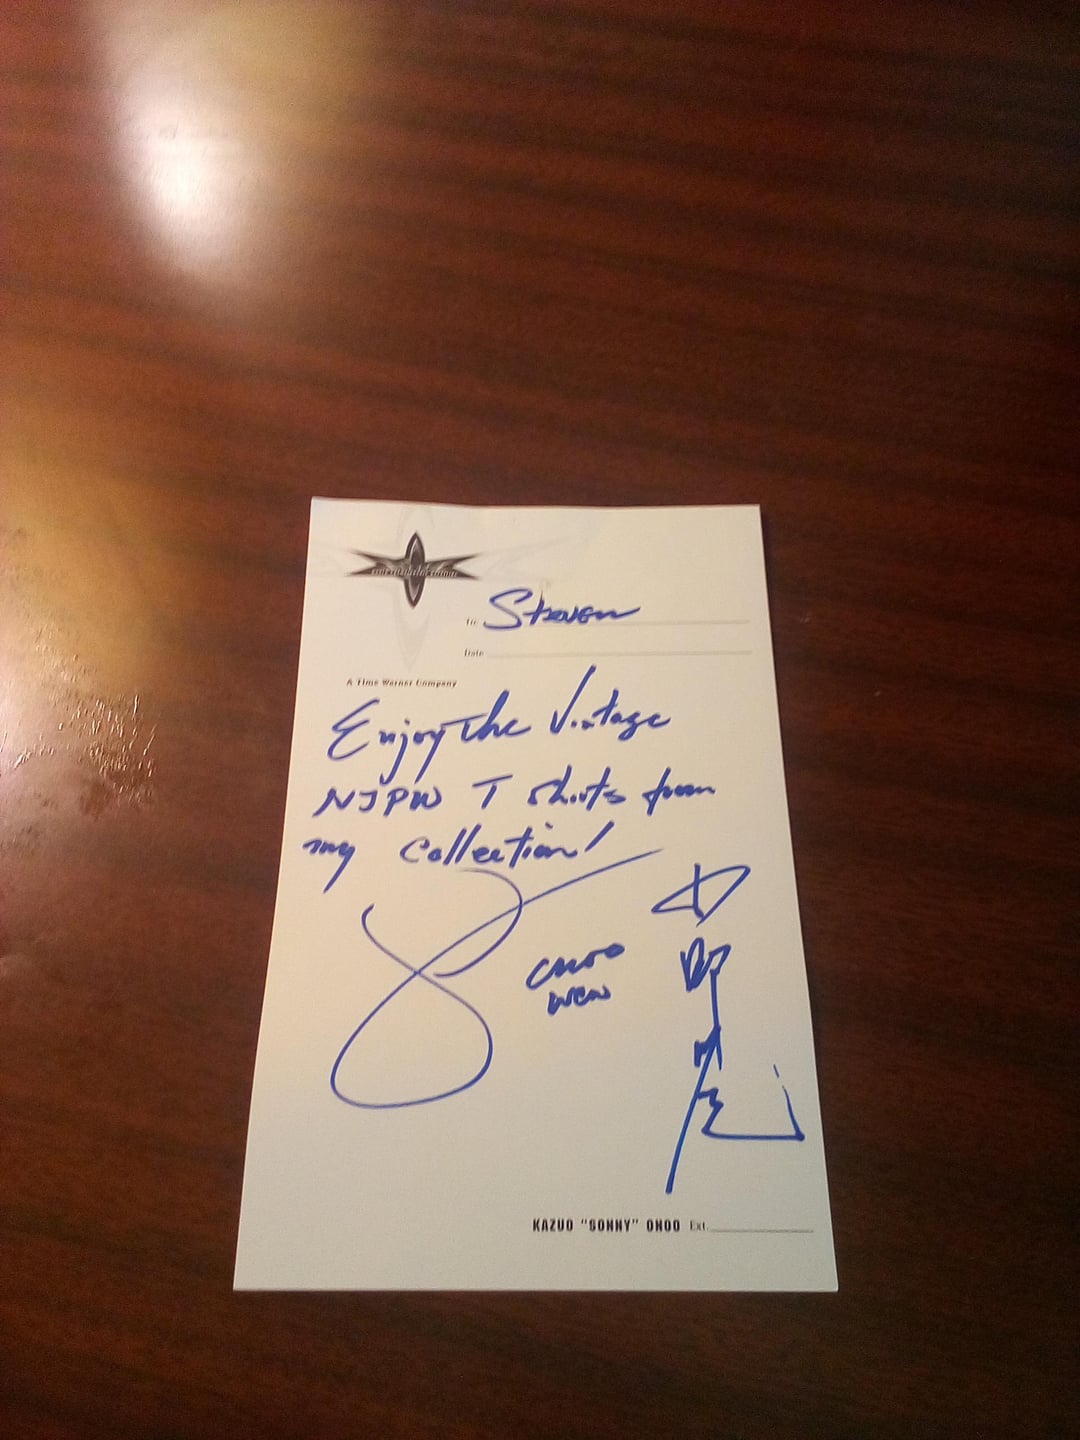 To: Steven
Date
A Time Warner Company
Enjoy The Vintage
NJPW T shirts from
my collection!
ONOO
WCW
KAZUO "SONNY" ONOO Ext.